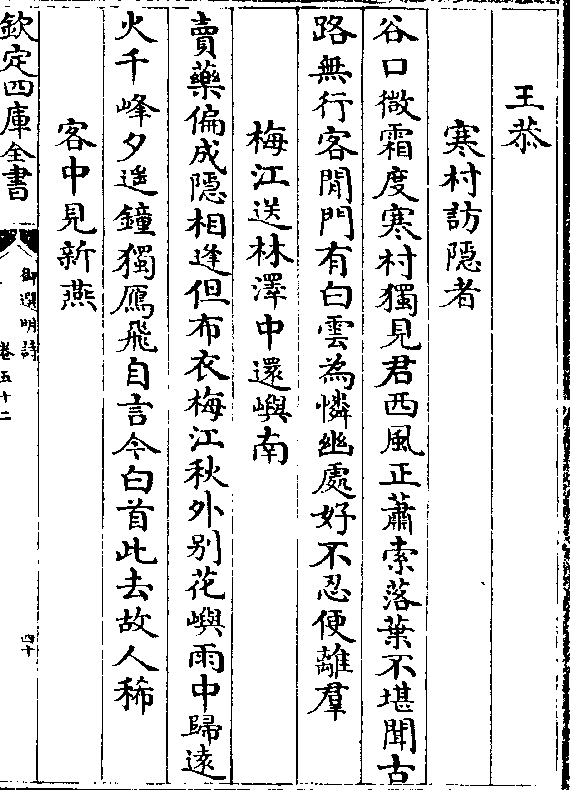 王恭
寒村訪隠者
谷口微霜度寒村獨見君西風正蕭索落葉不堪聞古
路無行客閒門有白雲為憐幽處好不忍便離羣
梅江送林澤中還嶼南
賣藥偏成隠相逢但布衣梅江秋外别花嶼雨中歸逺
火千峰夕遥鐘獨鴈飛自言今白首此去故人稀
客中見新燕
欽定四庫全書
御選明詩
卷五十二
四十